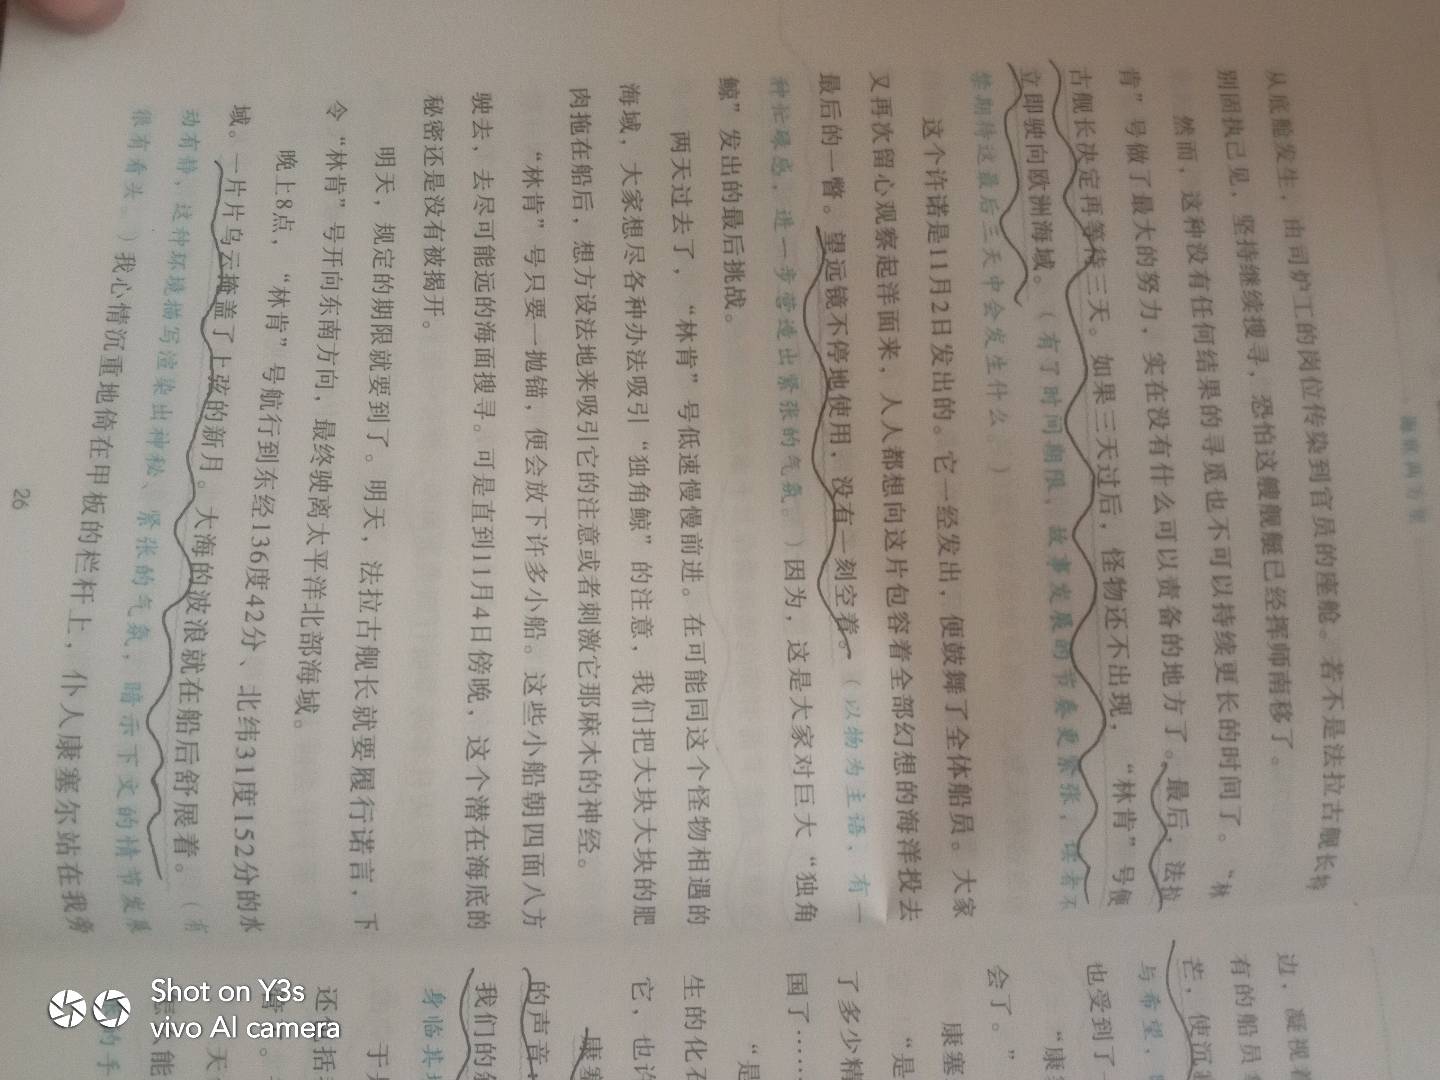 海底两万里
从底舱发生，由司炉工的岗位传染到官员的座舱。若不是法拉古舰长特
别固执己见，坚持继续搜寻，恐怕这艘舰艇已经挥师南移了。
然而，这种没有任何结果的寻觅也不可以持续更长的时间了。“林
肯”号做了最大的努力，实在没有什么可以责备的地方了。最后，法拉
古舰长决定再等待三天。如果三天过后，怪物还不出现，“林肯”号便
立即驶向欧洲海域。（有了时间期限，故事发展的节奏更紧张，读者不
禁期待这最后三天中会发生什么。）
这个许诺是11月2日发出的。它一经发出，便鼓舞了全体船员。大家
又再次留心观察起洋面来，人人都想向这片包容着全部幻想的海洋投去
最后的一瞥。望远镜不停地使用，没有一刻空着。（以物为主语，有一
种忙碌感，进一步营造出紧张的气氛。）因为，这是大家对巨大“独角
鲸”发出的最后挑战。
两天过去了，“林肯”号低速慢慢前进。在可能同这个怪物相遇的
海域，大家想尽各种办法吸引“独角鲸”的注意，我们把大块大块的肥
肉拖在船后，想方设法地来吸引它的注意或者刺激它那麻木的神经。
“林肯”号只要一抛锚，便会放下许多小船。这些小船朝四面八方
驶去，去尽可能远的海面搜寻。可是直到11月4日傍晚，这个潜在海底的
秘密还是没有被揭开。
明天，规定的期限就要到了。明天，法拉古舰长就要履行诺言，下
令“林肯”号开向东南方向，最终驶离太平洋北部海域。
晚上8点，“林肯”号航行到东经136度42分、北纬31度152分的水
域。一片片乌云掩盖了上弦的新月。大海的波浪就在船后舒展着。（有
动有静，这种环境描写渲染出神秘、紧张的气氛，暗示下文的情节发展
很有看头。）我心情沉重地倚在甲板的栏杆上，仆人康塞尔站在我旁
26
边，凝视着
有的船员
芒，使沉
与希望，
也受到了
“康
会了。”
康塞
“是
了多少精
国了……
“是
生的化石
它，也许
康塞
的声音，
我们的
身临其
于是
还包括
天
能
的手
Shot on Y3s
vivo AI camera